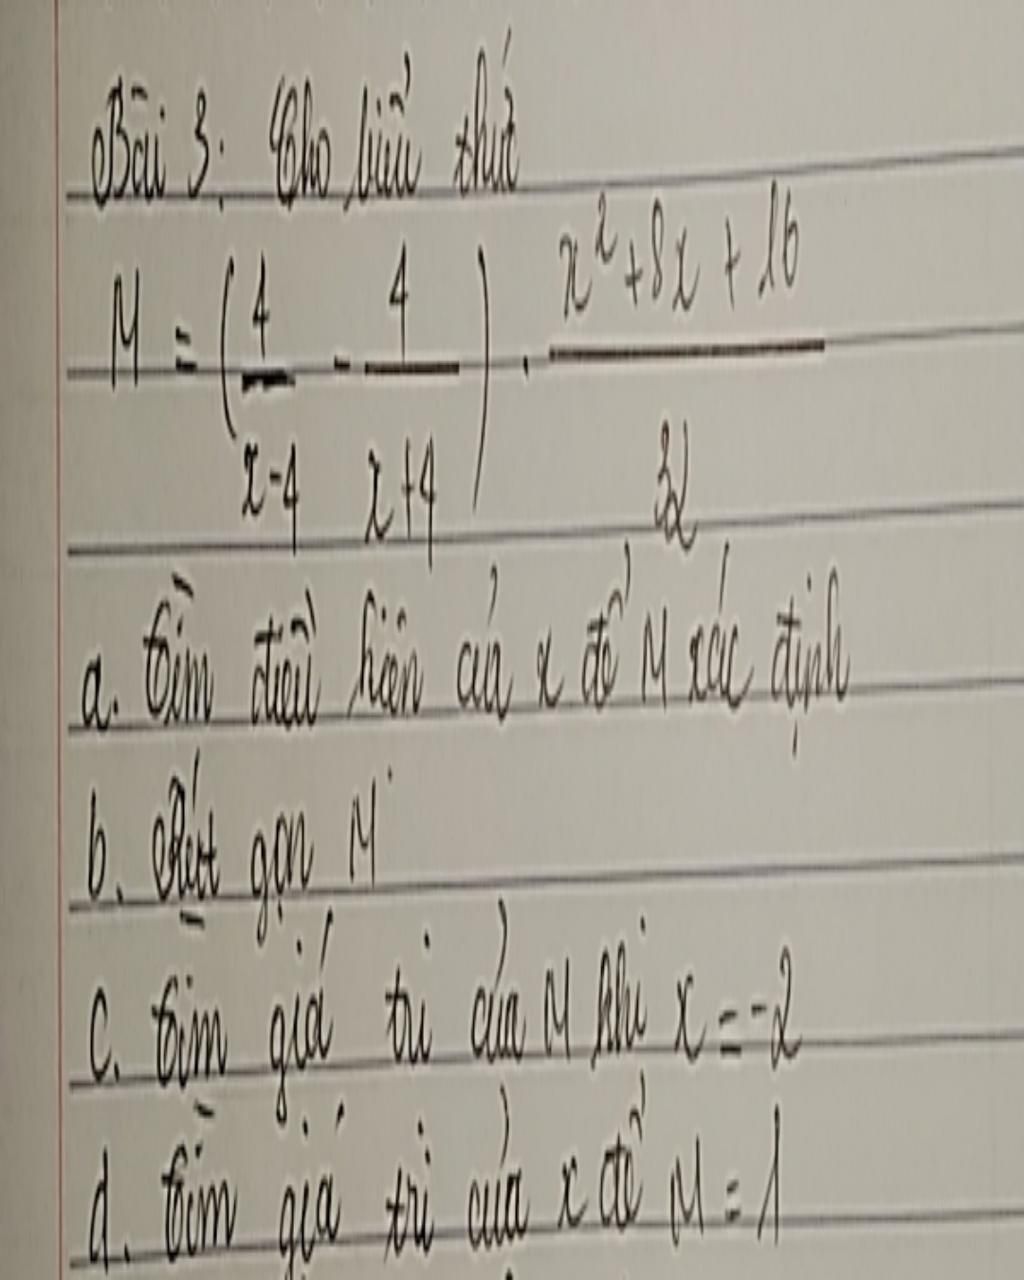 Bài 3: Cho biểu thức
M = (4/(x-4) - 4/(x+4)) . (x²+8x+16)/32
a. Tìm điều kiện của x để M xác định
b. Rút gọn M
c. Tìm giá trị của M khi x = -2
d. Tìm giá trị của x để M = 1